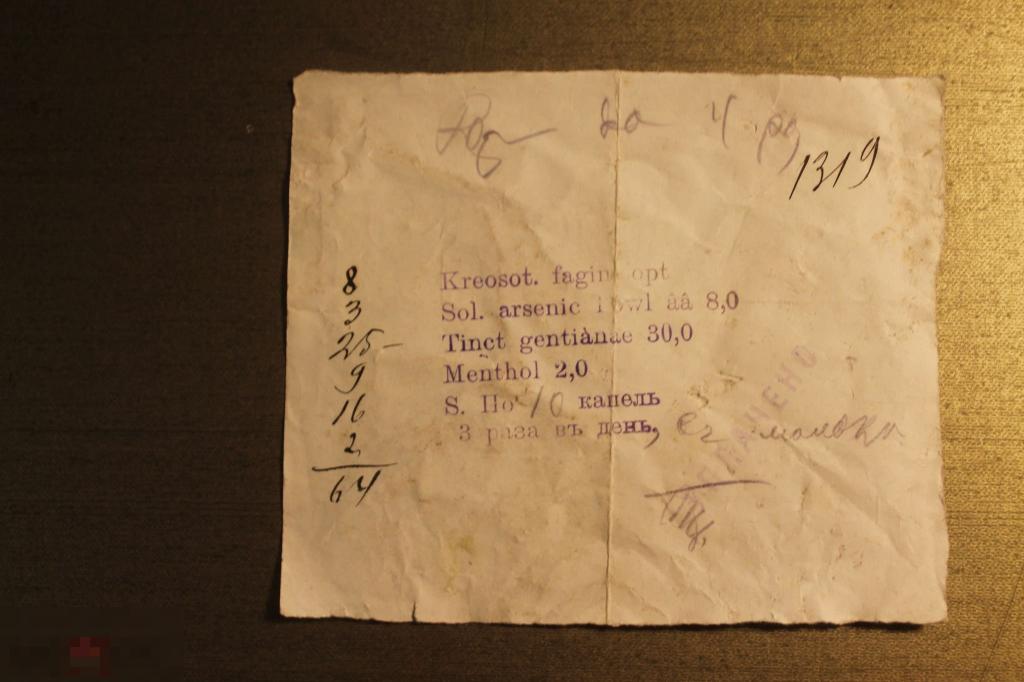 1319
8
3
25-
9
16
2
64
Kreosot. fagin opt
Sol. arsenic Fowl ââ 8,0
Tinct gentiànae 30,0
Menthol 2,0
S. По 10 капель
3 раза въ день,
молокѣ